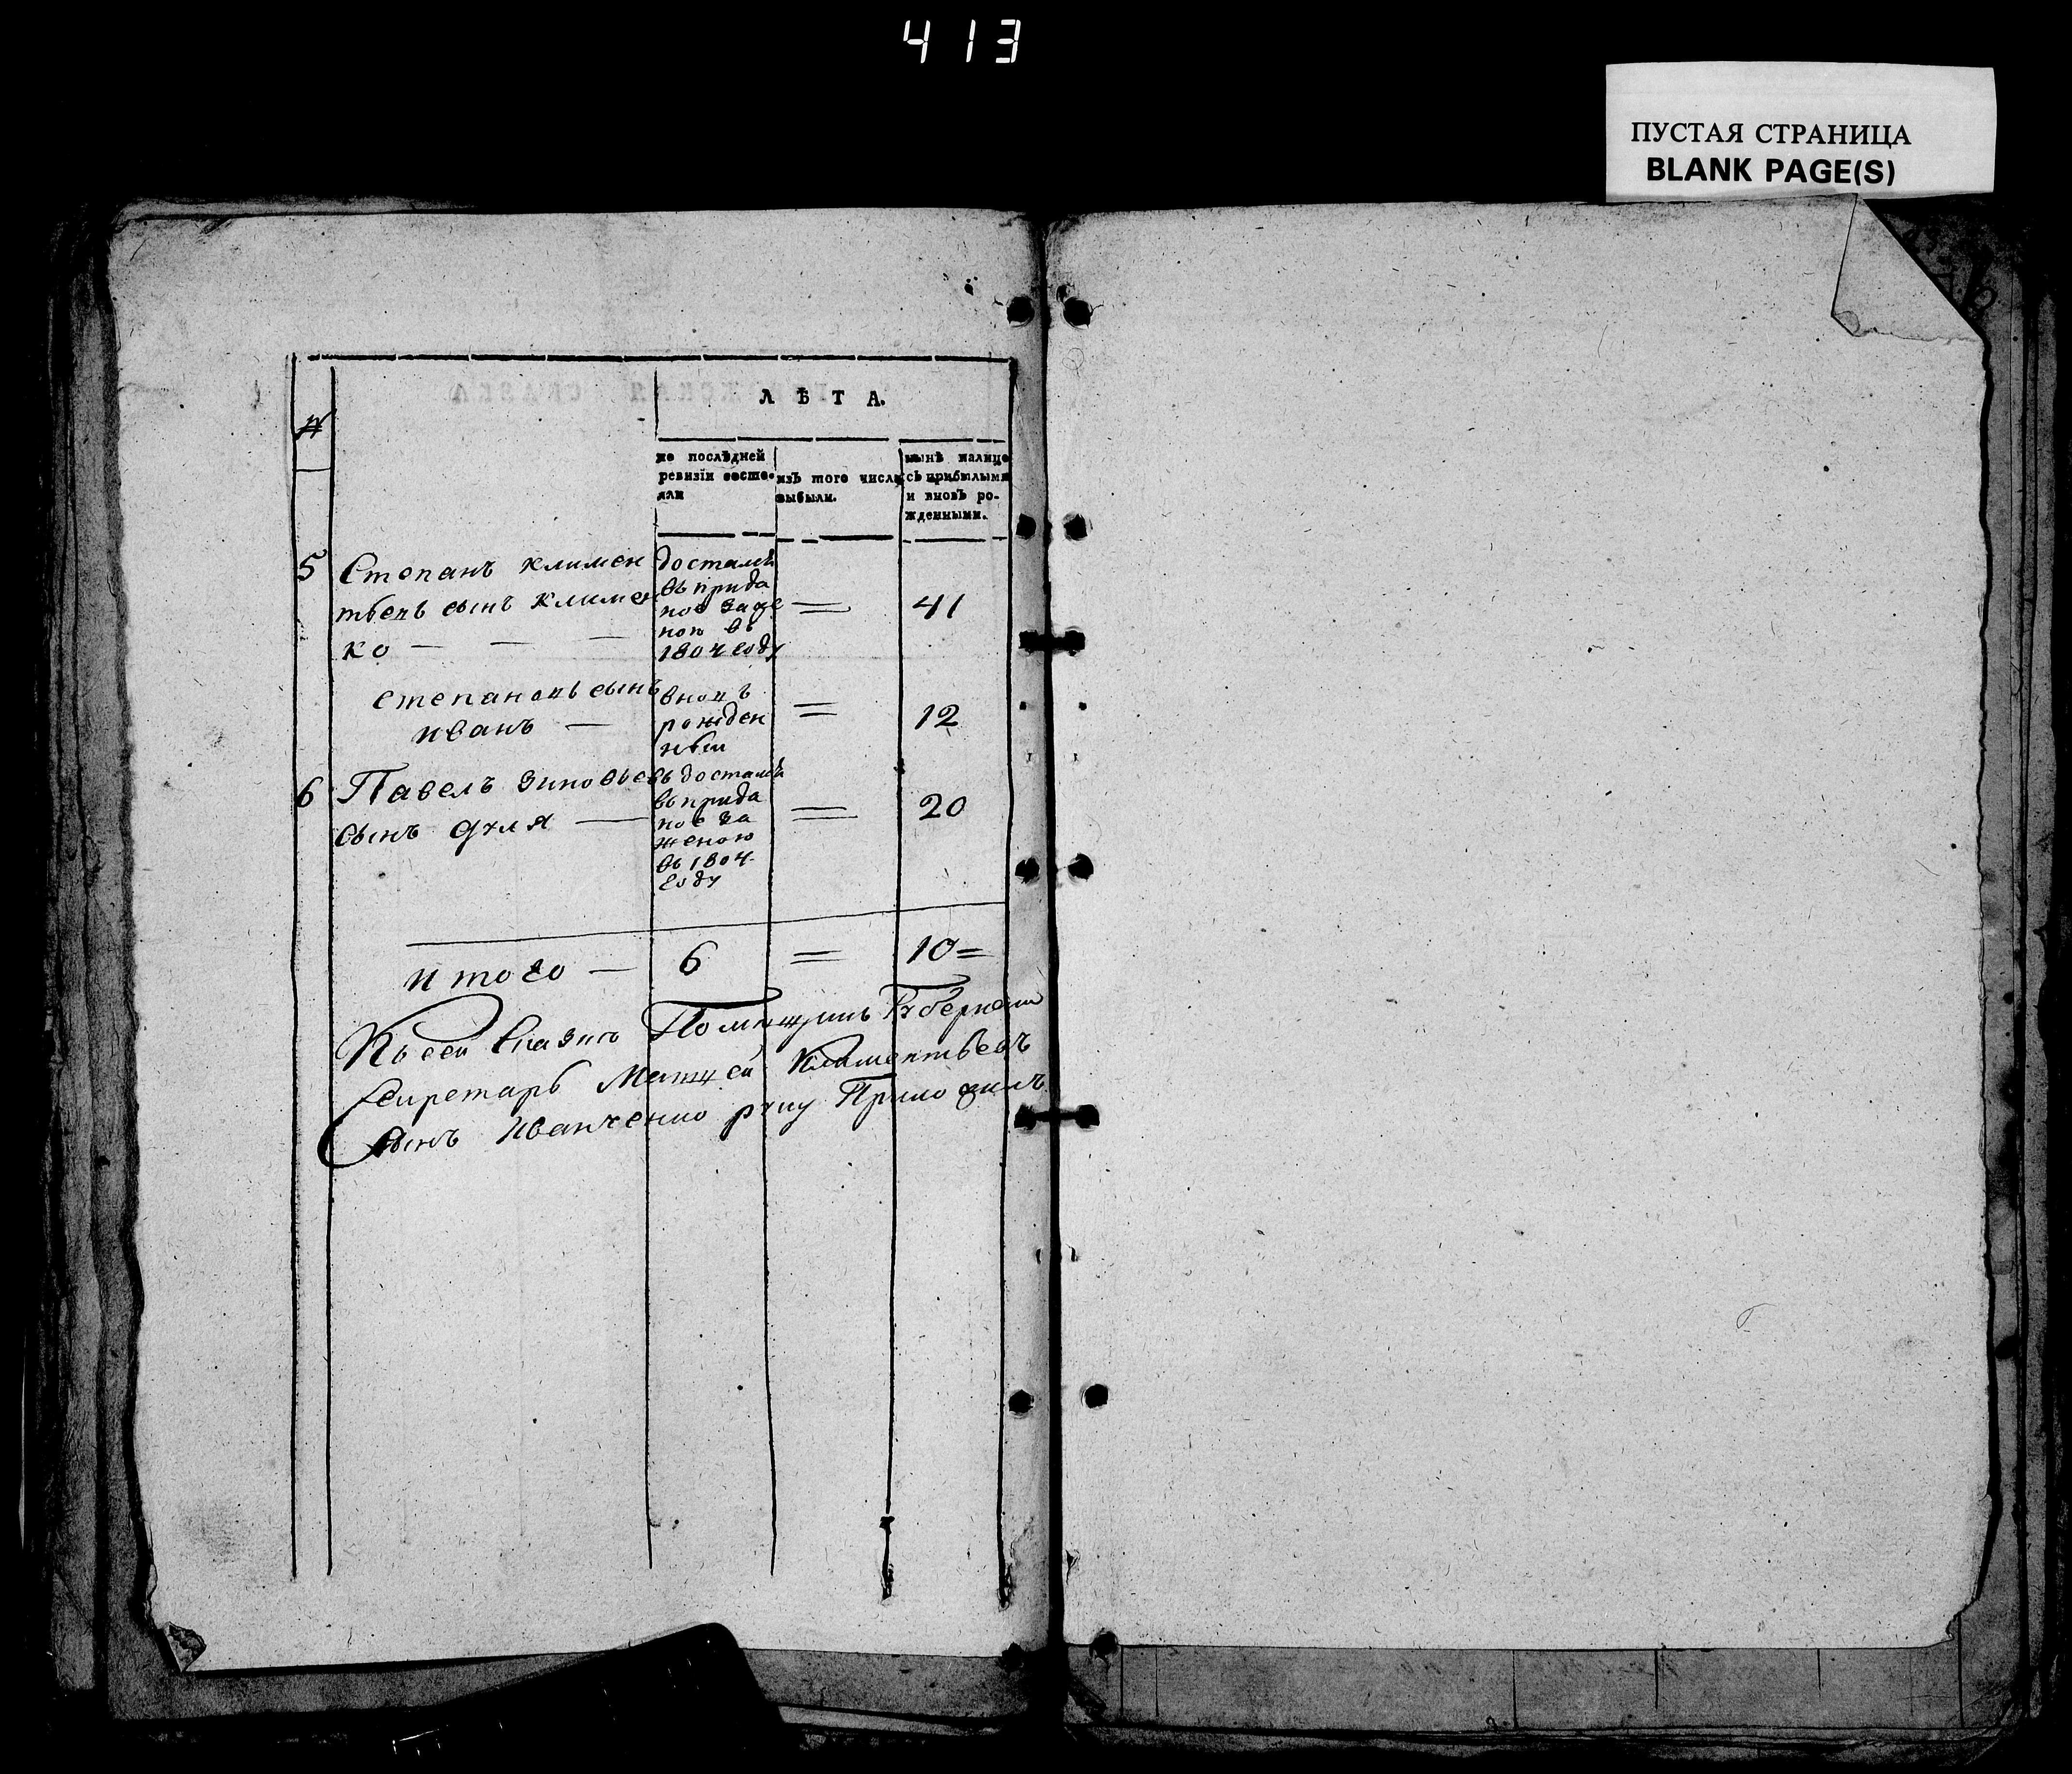 413
ПУСТАЯ СТРАНИЦА
BLANK PAGE(S)
ЛѢТА.
№
по послѣдней
ревизіи состо-
яли
изъ того числа
выбыли.
нынѣ налицо
съ прибылыми
и вновь ро-
жденными.
5 Степанъ климен
тьевъ сынъ клименко
досталса
въ прида
ное за же
ною въ
1804 году
=
41
степановъ сынъ
иванъ —
вновъ
рожден
ный
=
12
6 Павелъ зиновьевъ
сынъ дуля —
досталса
въ прида
ное за
женою
въ 1804
году
=
20
итого —
6
=
10=
Къ сей сказкѣ Помѣщикъ Губернски
Секретарь Матфей Климентьевъ
сынъ Иванченко руку Приложилъ